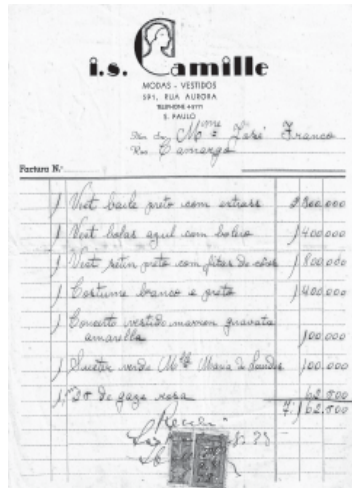 i.s. Camille
MODAS - VESTIDOS
591, RUA AURORA
TELEPHONE 4-5777
S. PAULO
Mme José Franco
Rua Camargo
Factura N.º
1 Vest baile preto com strass 2.300.000
1 Vest bolas azul com bolero 1.400.000
1 Vest setin preto com fitas de côres 1.800.000
1 Costume branco e preto 1.400.000
1 Concerto vestido marron gravata
amarella 100.000
1 Sueter verde Mlle Maria de Lourdes 100.000
de gaze rosa 62.500
7.162.500
Recebi